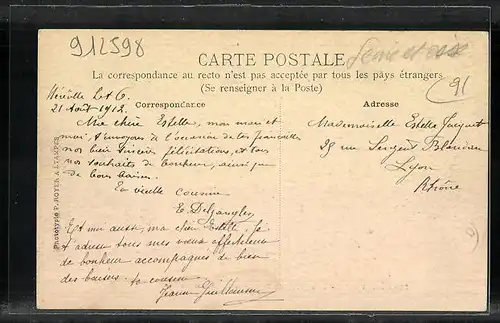 912598
Seine et Oise
91
CARTE POSTALE
La correspondance au recto n'est pas acceptée par tous les pays étrangers
(Se renseigner à la Poste)
Correspondance
Adresse
Phototypie P. ROYER
21 Août 1912.
Ma chère Estelle, mon mari et
moi, t'envoyons à l'occasion de tes fiançailles
nos bien sincères félicitations, et tous
nos souhaits de bonheur, ainsi que
de bons baisers.
Ta vieille cousine
E.
Et moi aussi, ma chère Estelle, je
t'adresse tous mes vœux affectueux
de bonheur accompagnés de bien
des baisers. ta cousine
Jeanne
Mademoiselle Estelle Jacquet
rue Sergent Blandan
Lyon
Rhône